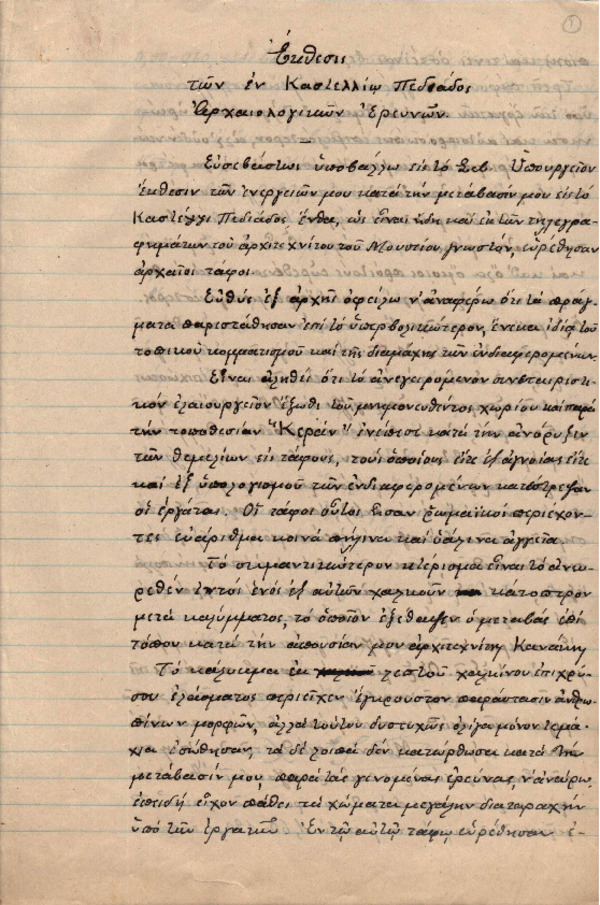 1
Ἔκθεσις
τῶν ἐν Καστελλίῳ Πεδιάδος
Ἀρχαιολογικῶν Ἐρευνῶν.
Εὐσεβάστως ὑποβάλλω εἰς τὸ Σεβ. Ὑπουργεῖον
ἔκθεσιν τῶν ἐνεργειῶν μου κατὰ τὴν μετάβασίν μου εἰς τὸ
Καστέλλι Πεδιάδος, ἔνθα, ὡς εἶναι ἤδη καὶ ἐκ τῶν τηλεγρα-
φημάτων τοῦ ἀρχιτεχνίτου τοῦ Μουσείου γνωστόν, εὑρέθησαν
ἀρχαῖοι τάφοι.
Εὐθὺς ἐξ ἀρχῆς ὀφείλω ν' ἀναφέρω ὅτι τὰ πράγ-
ματα παρεστάθησαν ἐπὶ τὸ ὑπερβολικώτερον, ἕνεκα ἰδίᾳ τοῦ
τοπικοῦ κομματισμοῦ καὶ τῆς διαμάχης τῶν ἐνδιαφερομένων.
Εἶναι ἀληθὲς ὅτι τὸ ἀνεγειρόμενον συνεταιριστι-
κὸν ἐλαιουργεῖον ἔξωθι τοῦ μνημονευθέντος χωρίου καὶ παρὰ
τὴν τοποθεσίαν "Κεράν" ἐνέπεσε κατὰ τὴν ἀνόρυξιν
τῶν θεμελίων εἰς τάφους, τοὺς ὁποίους εἴτε ἐξ ἀγνοίας εἴτε
καὶ ἐξ ὑπολογισμοῦ τῶν ἐνδιαφερομένων κατέστρεψαν
οἱ ἐργάται. Οἱ τάφοι οὗτοι ἦσαν ῥωμαϊκοὶ περιέχον-
τες εὐάριθμα κοινὰ πήλινα καὶ ὑάλινα ἀγγεῖα.
Τὸ σημαντικώτερον κτέρισμα εἶναι τὸ ἀνευ-
ρεθὲν ἐντὸς ἑνὸς ἐξ αὐτῶν χαλκοῦν κάτοπτρον
μετὰ καλύμματος, τὸ ὁποῖον ἐξέθαψεν ὁ μεταβὰς ἐπὶ
τόπου κατὰ τὴν ἀπουσίαν μου ἀρχιτεχνίτης Κανάκης
Τὸ κάλυμμα ἐκ λεπτοῦ χαλκίνου ἐπιχρύ-
σου ἐλάσματος περιεῖχεν ἔγκρουστον παράστασιν ἀνθρω-
πίνων μορφῶν, ἀλλὰ τούτου δυστυχῶς ὀλίγα μόνον τεμά-
χια ἐσώθησαν, τὰ δὲ λοιπὰ δὲν κατώρθωσα κατὰ τὴν
μετάβασίν μου, παρὰ τὰς γενομένας ἐρεύνας, ν' ἀνεύρω,
ἐπειδὴ εἶχον πάθει τὰ χώματα μεγάλην διαταραχὴν
ὑπὸ τῶν ἐργατῶν. Ἐν τῷ αὐτῷ τάφῳ εὑρέθησαν ἐ-